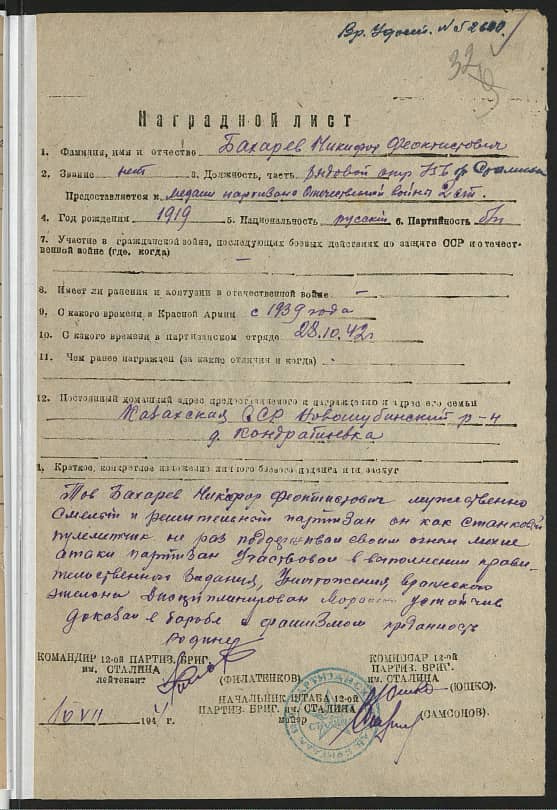 Вр. Удост. № 52600
32
Наградной лист
1. Фамилия, имя и отчество Бахарев Никифор Феоктистович
2. Звание нет 3. Должность, часть рядовой отр Сталина
Предоставляется к медали партизана Отечественной войны 2 ст.
4. Год рождения 1919 5. Национальность русский 6. Партийность б/п
7. Участие в гражданской войне, последующих боевых действиях по защите ССР и отечест-
венной войне (где, когда) –
8. Имеет ли ранения и контузии в отечественной войне –
9. С какого времени в Красной Армии с 1939 года
10. С какого времени в партизанском отряде 28.10.42г
11. Чем ранее награжден (за какие отличия и когда)
12. Постоянный домашний адрес предоставляемого к награждению и адрес его семьи
Казахская ССР Новошубинский р-н
д. Кондратиевка
1. Краткое, конкретное изложение личного боевого подвига или заслуг
Тов Бахарев Никифор Феоктистович мужественно
смелый и решительный партизан он как станковый
пулеметчик не раз поддерживал своим огнем
атаки партизан Участвовал в выполнении прави-
тельственного задания, Уничтожения вражеского
эшелона Дисциплинирован Морально устойчив
доказал в борьбе с фашизмом преданность
Родине
КОМАНДИР 12-ой ПАРТИЗ. БРИГ.
им. СТАЛИНА
лейтенант (ФИЛАТЕНКОВ).
КОМИССАР 12-ой
ПАРТИЗ. БРИГ.
им. СТАЛИНА
(ЮШКО).
НАЧАЛЬНИК ШТАБА 12-ой
ПАРТИЗ. БРИГ. им. СТАЛИНА
майор (САМСОНОВ).
VII 1944 г.